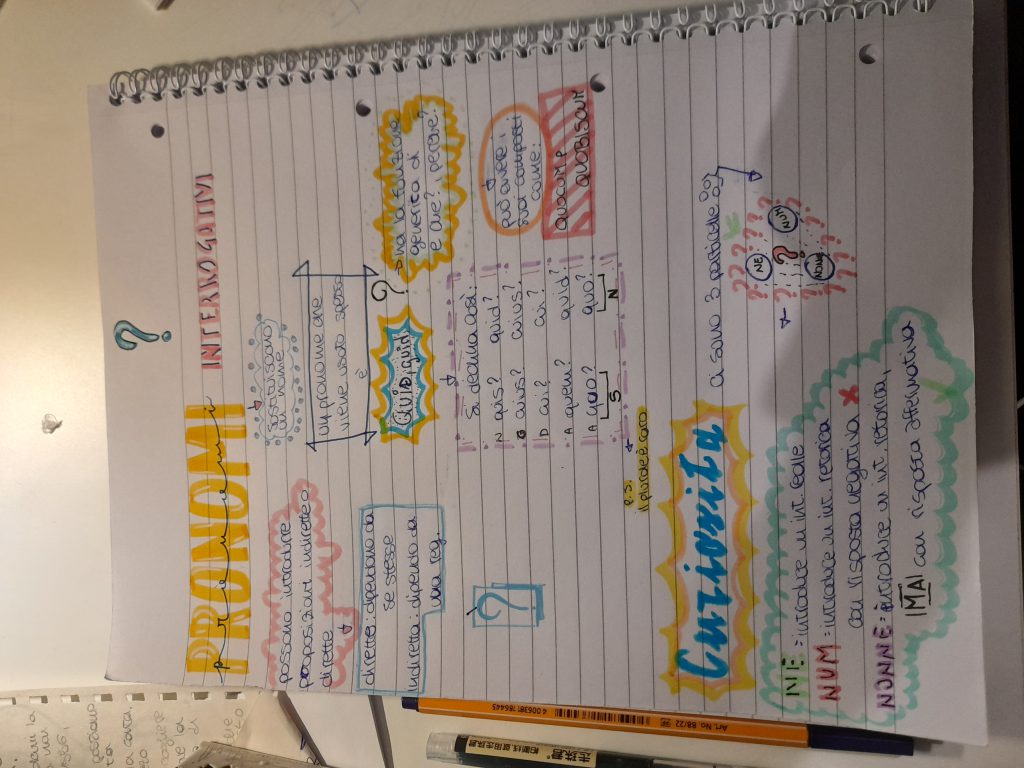 ?
PRONOMI
pronomi
INTERROGATIVI
possono introdurre
proposizioni indirette o
dirette
sostituiscono
un nome
un pronome che
viene usato spesso
è
dirette: dipendono da
se stesse
indirette: dipendono da
una reg.
Quis, quid
?
> ha la funzione
generica di
e che?, perché?
Si declina così:
N quis? quid?
G cuius? cuius?
D cui? cui?
A quem? quid?
A quo? quo?
S N
può avere i
suoi composti
come:
QUOCUMP
QUOBISCUM
?
P.S.
il plurale è raro
Curiosità
ci sono 3 particelle
? ? ? ? ? ?
NE
NUM
?
NONNE
? ? ? ?
NE = introduce un int. reale
NUM = introduce un int. retorica
con risposta negativa X
NONNE = introduce un int. retorica,
MA con risposta affermativa
4 006381 786445
Art No 88/22